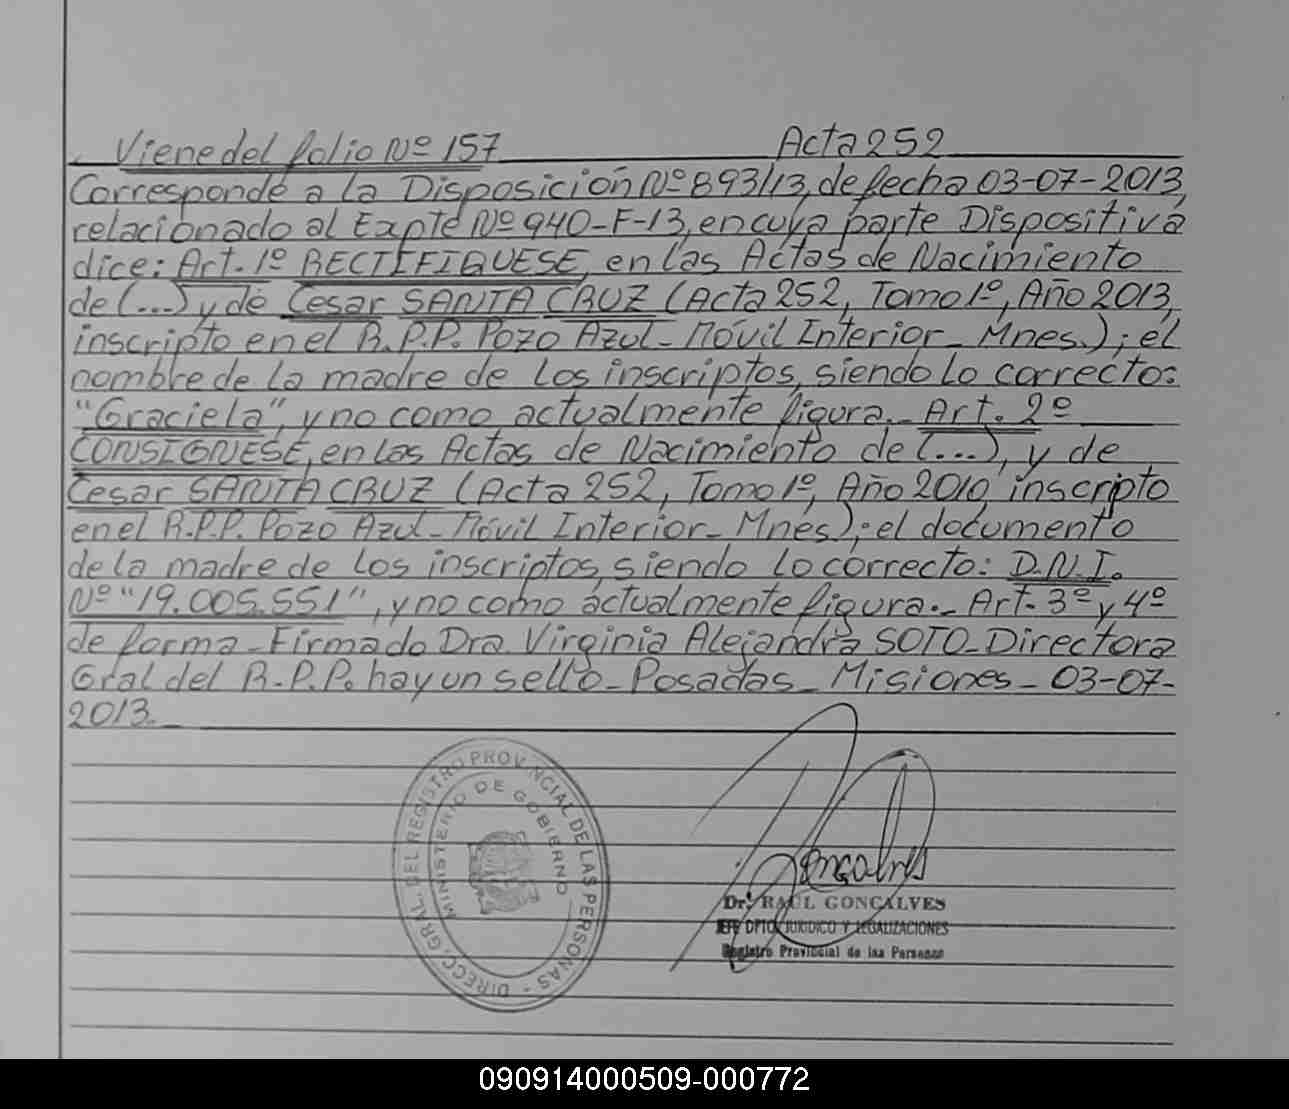 Viene del folio Nº 157 Acta 252
Corresponde a la Disposición Nº 893/13, de fecha 03-07-2013,
relacionado al Expte Nº 940-F-13, en cuya parte Dispositiva
dice: Art. 1º RECTIFIQUESE, en las Actas de Nacimiento
de (...) y de Cesar SANTA CRUZ (Acta 252, Tomo 1º, Año 2013,
inscripto en el R.P.P. Pozo Azul - Móvil Interior - Mnes.); el
nombre de la madre de los inscriptos, siendo lo correcto:
"Graciela", y no como actualmente figura.- Art. 2º
CONSIGNESE, en las Actas de Nacimiento de (...), y de
Cesar SANTA CRUZ (Acta 252, Tomo 1º, Año 2010, inscripto
en el R.P.P. Pozo Azul - Móvil Interior - Mnes); el documento
de la madre de los inscriptos, siendo lo correcto: D.N.I.
Nº "19.005.551", y no como actualmente figura.- Art. 3º y 4º
de forma - Firmado Dra. Virginia Alejandra SOTO - Directora
Gral del R.P.P. hay un sello - Posadas - Misiones - 03-07-
2013.
DIRECC. GRAL. DEL REGISTRO PROVINCIAL DE LAS PERSONAS -
MINISTERIO DE GOBIERNO
Goncalves
Dr. RAUL GONCALVES
JEFE DPTO. JURIDICO Y LEGALIZACIONES
Registro Provincial de las Personas
090914000509-000772